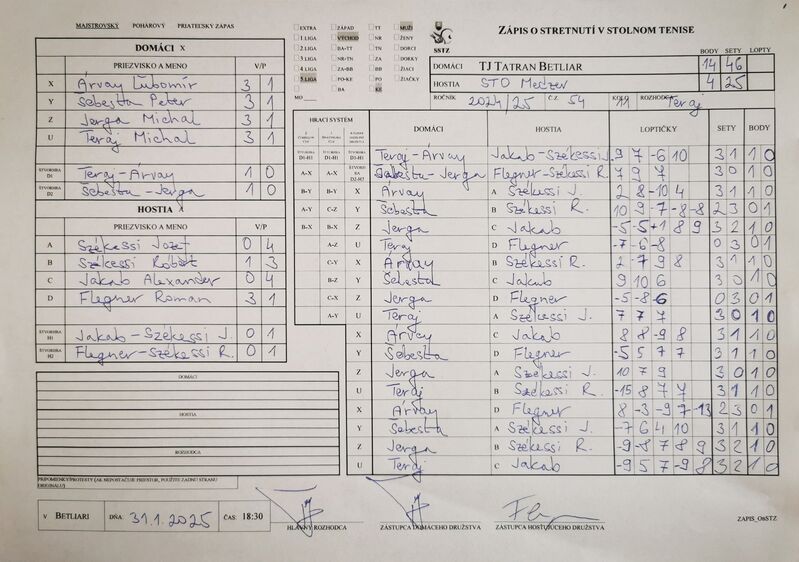 MAJSTROVSKÝ POHÁROVÝ PRIATEĽSKÝ ZÁPAS
EXTRA ZÁPAD TT MUŽI
1.LIGA VÝCHOD NR ŽENY
2.LIGA BA-TT TN DORCI
3.LIGA NR-TN ZA DORKY
4.LIGA ZA-BB BB ŽIACI
5.LIGA PO-KE PO ŽIAČKY
BA KE
MO
SSTZ
ZÁPIS O STRETNUTÍ V STOLNOM TENISE
BODY SETY LOPTY
DOMÁCI TJ TATRAN BETLIAR 14 46
HOSTIA STO Medzev 4 25
ROČNÍK 2024/25 Č.Z. 54 KOLO 11 ROZHODCA Teraj
DOMÁCI X
PRIEZVISKO A MENO V/P
X Árvay Ľubomír 3 1
Y Šebesta Peter 3 1
Z Jerga Michal 3 1
U Teraj Michal 3 1
ŠTVORHRA D1 Teraj-Árvay 1 0
ŠTVORHRA D2 Šebesta-Jerga 1 0
HOSTIA A
PRIEZVISKO A MENO V/P
A Székessi Jozef 0 4
B Székessi Róbert 1 3
C Jakab Alexander 0 4
D Flegner Roman 3 1
ŠTVORHRA H1 Jakab-Székessi J 0 1
ŠTVORHRA H2 Flegner-Székessi R. 0 1
DOMÁCI
HOSTIA
ROZHODCA
PRIPOMIENKY/PROTESTY (AK NEPOSTAČUJE PRIESTOR, POUŽITE ZADNÚ STRANU ORIGINÁLU)
HRACÍ SYSTÉM DOMÁCI HOSTIA LOPTIČKY SETY BODY
ŠTVORHRA D1-H1 ŠTVORHRA D1-H1 ŠTVORHRA D1-H1 Teraj-Árvay Jakab-Székessi J. 9 7 -6 10 3 1 1 0
A-X A-X ŠTVORHRA D2-H2 Šebesta-Jerga Flegner-Székessi R. 7 9 7 3 0 1 0
B-Y B-Y X Árvay A Székessi J. 2 8 -10 4 3 1 1 0
A-Y C-Z Y Šebesta B Székessi R. 10 9 -7 -8 -8 2 3 0 1
B-X B-X Z Jerga C Jakab -5 -5 +1 8 9 3 2 1 0
A-Z U Teraj D Flegner -7 -6 -8 0 3 0 1
C-Y X Árvay B Székessi R. 2 -7 9 8 3 1 1 0
B-Z Y Šebesta C Jakab 9 10 6 3 0 1 0
C-X Z Jerga D Flegner -5 -8 -6 0 3 0 1
A-Y U Teraj A Székessi J. 7 7 7 3 0 1 0
X Árvay C Jakab 8 8 -9 8 3 1 1 0
Y Šebesta D Flegner -5 5 7 7 3 1 1 0
Z Jerga A Székessi J. 10 7 9 3 0 1 0
U Teraj B Székessi R. -15 8 7 7 3 1 1 0
X Árvay D Flegner 8 -3 -9 7 -13 2 3 0 1
Y Šebesta A Székessi J. -7 6 4 10 3 1 1 0
Z Jerga B Székessi R. -9 -8 7 8 9 3 2 1 0
U Teraj C Jakab -9 5 7 -9 8 3 2 1 0
V BETLIARI DŇA: 31.1.2025 ČAS: 18:30
HLAVNÝ ROZHODCA ZÁSTUPCA DOMÁCEHO DRUŽSTVA ZÁSTUPCA HOSŤUJÚCEHO DRUŽSTVA
ZAPIS_OnSTZ